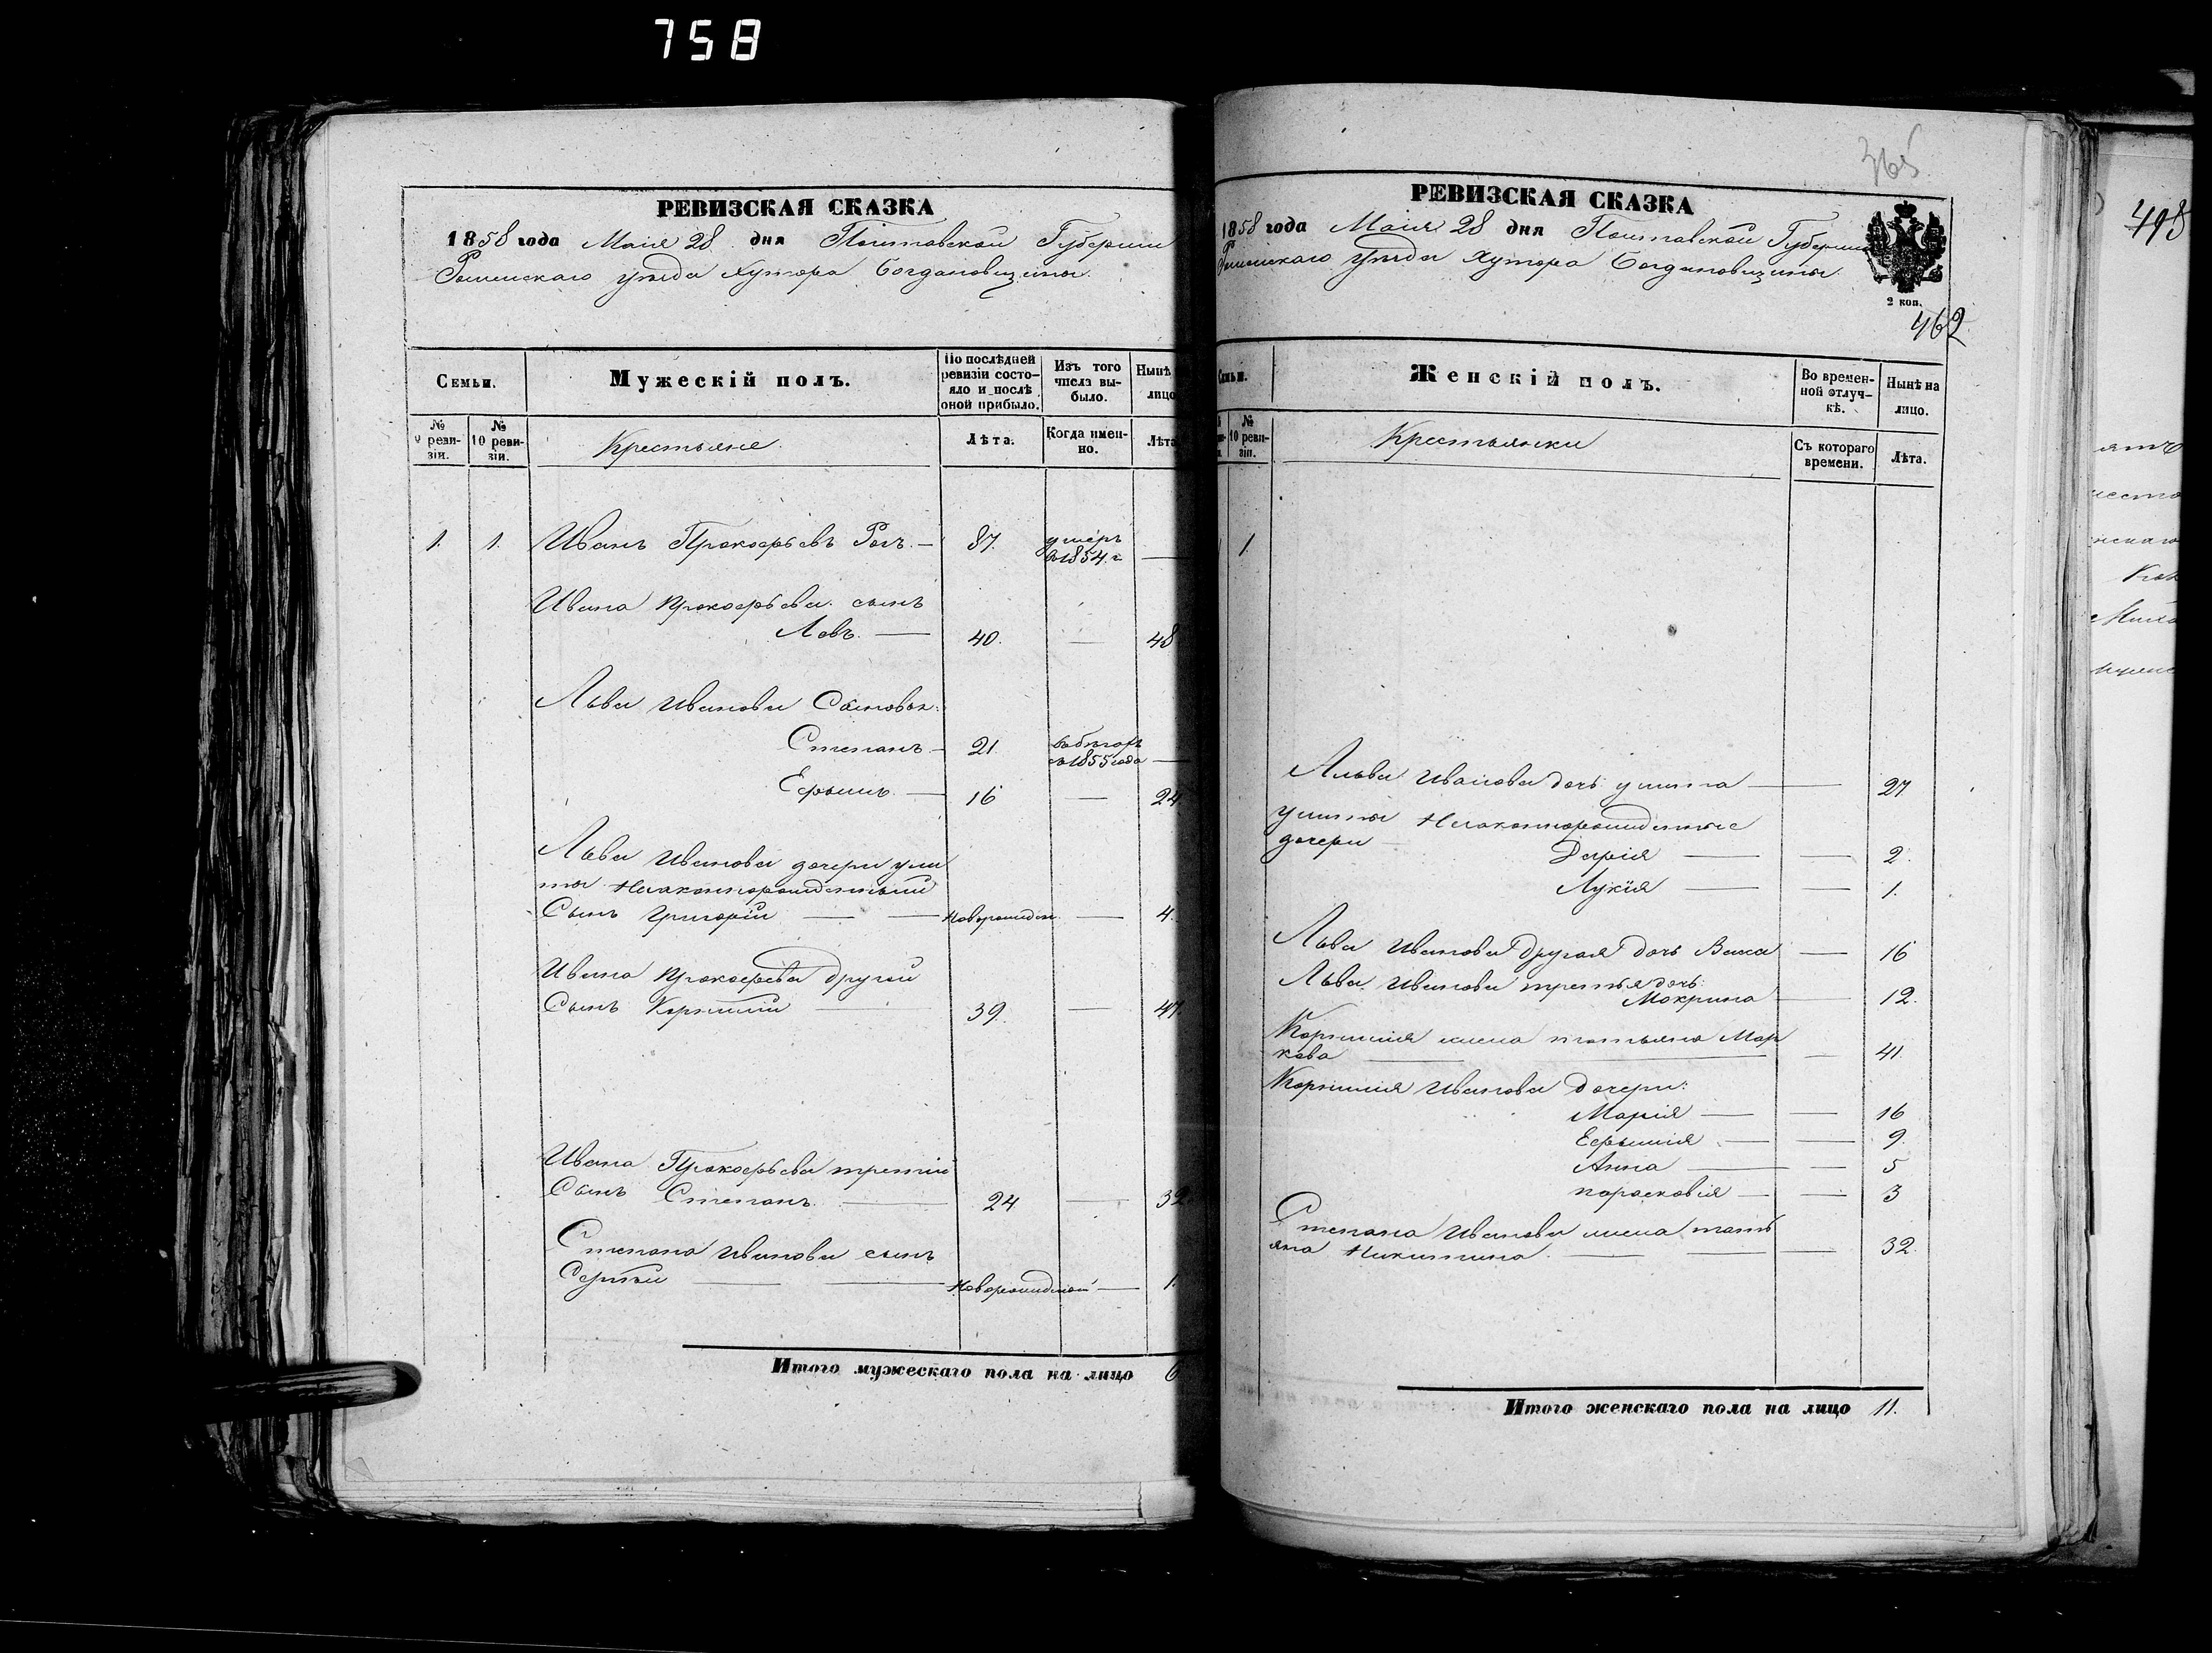 758
РЕВИЗСКАЯ СКАЗКА
1858 года Маія 28 дня Полтавской Губерніи
Роменскаго уѣзда Хутора Богдановщины
Семьи.
Мужескій полъ.
По послѣдней ревизіи состояло и послѣ оной прибыло.
Изъ того числа выбыло.
Нынѣ
лицо
№ 9 ревизіи.
№ 10 ревизіи.
Крестьяне
Лѣта.
Когда именно.
Лѣта
1. 1. Иванъ Прокофьевъ Рогъ. — 87. умеръ
въ 1854. г —
Ивана Прокофьева сынъ
Левъ. — 40. — 48
Льва Иванова Сыновья:
Степанъ — 21. въ бѣгахъ
съ 1855 года —
Ефимъ — 16 — 24
Льва Иванова дочери Ули
ты Незаконнорожденный
Сынъ Григорій — — Новорожден — 4.
Ивана Прокофьева другой
Сынъ Корнилій — 39. — 47.
Ивана Прокофьева третій
Сынъ Степанъ. — 24 — 32
Степана Иванова сынъ
Сергѣй — — Новорожденный — 1.
Итого мужескаго пола на лицо 6
365
РЕВИЗСКАЯ СКАЗКА
1858 года Маія 28 дня Полтавской Губерніи
Роменскаго уѣзда Хутора Богдановщины.
2 коп.
462
Семьи.
Женскій полъ.
Во временной отлучкѣ.
Нынѣ на лицо.
№ 10 ревизіи.
Крестьянки
Съ котораго времени.
Лѣта.
1.
Льва Иванова дочь Улита — 27
Улиты Незаконнорожденные
дочери Дарія — — 2.
Лукія — — 1.
Льва Иванова другая дочь Васса — 16
Льва Иванова третья дочь
Мокрина — 12.
Корнилія жена Татьяна Мар
кова — — — 41.
Корнилія Иванова дочери:
Марія — — 16
Ефимія — — 9.
Анна — — 5
Парасковія — — 3
Степана Иванова жена Тать
яна Никитина — — — 32.
Итого женскаго пола на лицо 11.
498